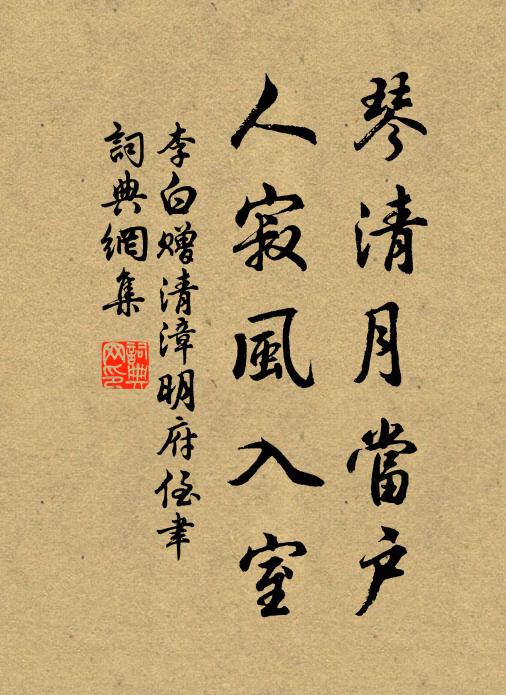 琴清月當户
人寂風入室
李白贈清漳明府侄聿
詞典網集
詞典网印